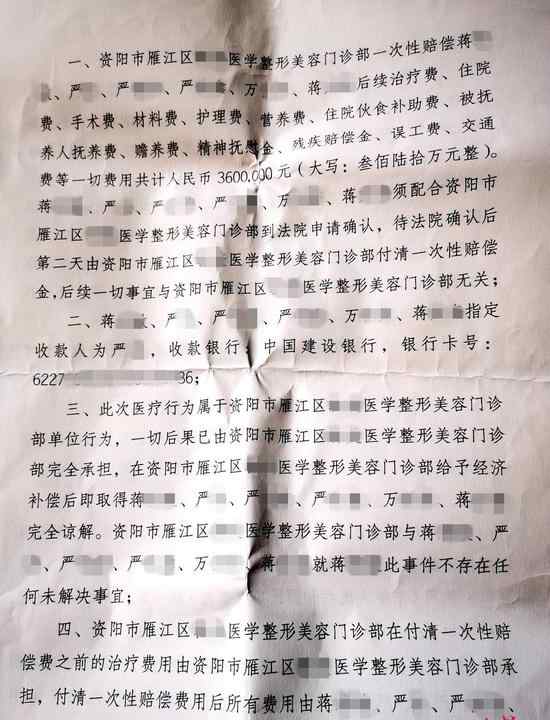 一、资阳市雁江区医学整形美容门诊部一次性赔偿蒋
、严、严、严、万、蒋后续治疗费、住院
费、手术费、材料费、护理费、营养费、住院伙食补助费、被抚
养人抚养费、赡养费、精神抚慰金、残疾赔偿金、误工费、交通
费等一切费用共计人民币3600,000元（大写：叁佰陆拾万元整）。
蒋、严、严、严、万、蒋须配合资阳市
雁江区医学整形美容门诊部到法院申请确认，待法院确认后
第二天由资阳市雁江区医学整形美容门诊部付清一次性赔偿
金,后续一切事宜与资阳市雁江区医学整形美容门诊部无关；
二、蒋、严、严、严、万、蒋指定
收款人为严，收款银行：中国建设银行，银行卡号：
6227 36；
三、此次医疗行为属于资阳市雁江区医学整形美容门诊
部单位行为，一切后果已由资阳市雁江区医学整形美容门诊
部完全承担，在资阳市雁江区医学整形美容门诊部给予经济
补偿后即取得蒋、严、严、严、万、蒋
完全谅解。资阳市雁江区医学整形美容门诊部与蒋、严
、严、严、万、蒋就蒋此事件不存在任
何未解决事宜；
四、资阳市雁江区医学整形美容门诊部在付清一次性赔
偿费之前的治疗费用由资阳市雁江区医学整形美容门诊部承
担，付清一次性赔偿费用后所有费用由蒋、严、严、